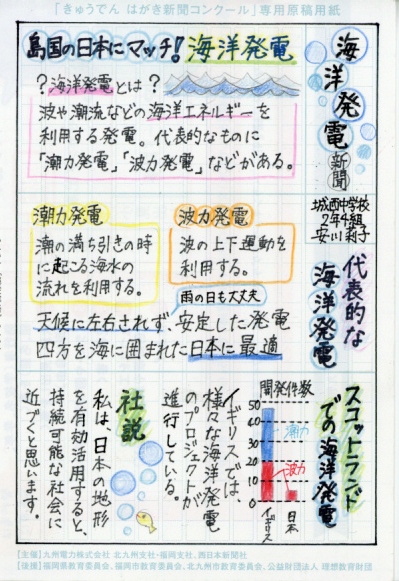 「きゅうでん はがき新聞コンクール」専用原稿用紙
海洋発電新聞
城西中学校
2年4組
安川莉子
島国の日本にマッチ!海洋発電
?海洋発電とは?
波や潮流などの海洋エネルギーを
利用する発電。代表的なものに
「潮力発電」「波力発電」などがある。
代表的な
海洋発電
潮力発電
潮の満ち引きの時
に起こる海水の
流れを利用する。
波力発電
波の上下運動を
利用する。
雨の日も大丈夫
天候に左右されず、安定した発電
四方を海に囲まれた日本に最適
スコットランド
での海洋発電
開発件数
50
40
30
20
10
0
潮力
波力
イギリス
日本
イギリスでは、
様々な海洋発電
のプロジェクトが
進行している。
社説
私は、日本の地形
を有効活用すると、
持続可能な社会に
近づくと思います。
【主催】九州電力株式会社 北九州支社・福岡支社、西日本新聞社
【後援】福岡県教育委員会、福岡市教育委員会、北九州市教育委員会、公益財団法人 理想教育財団